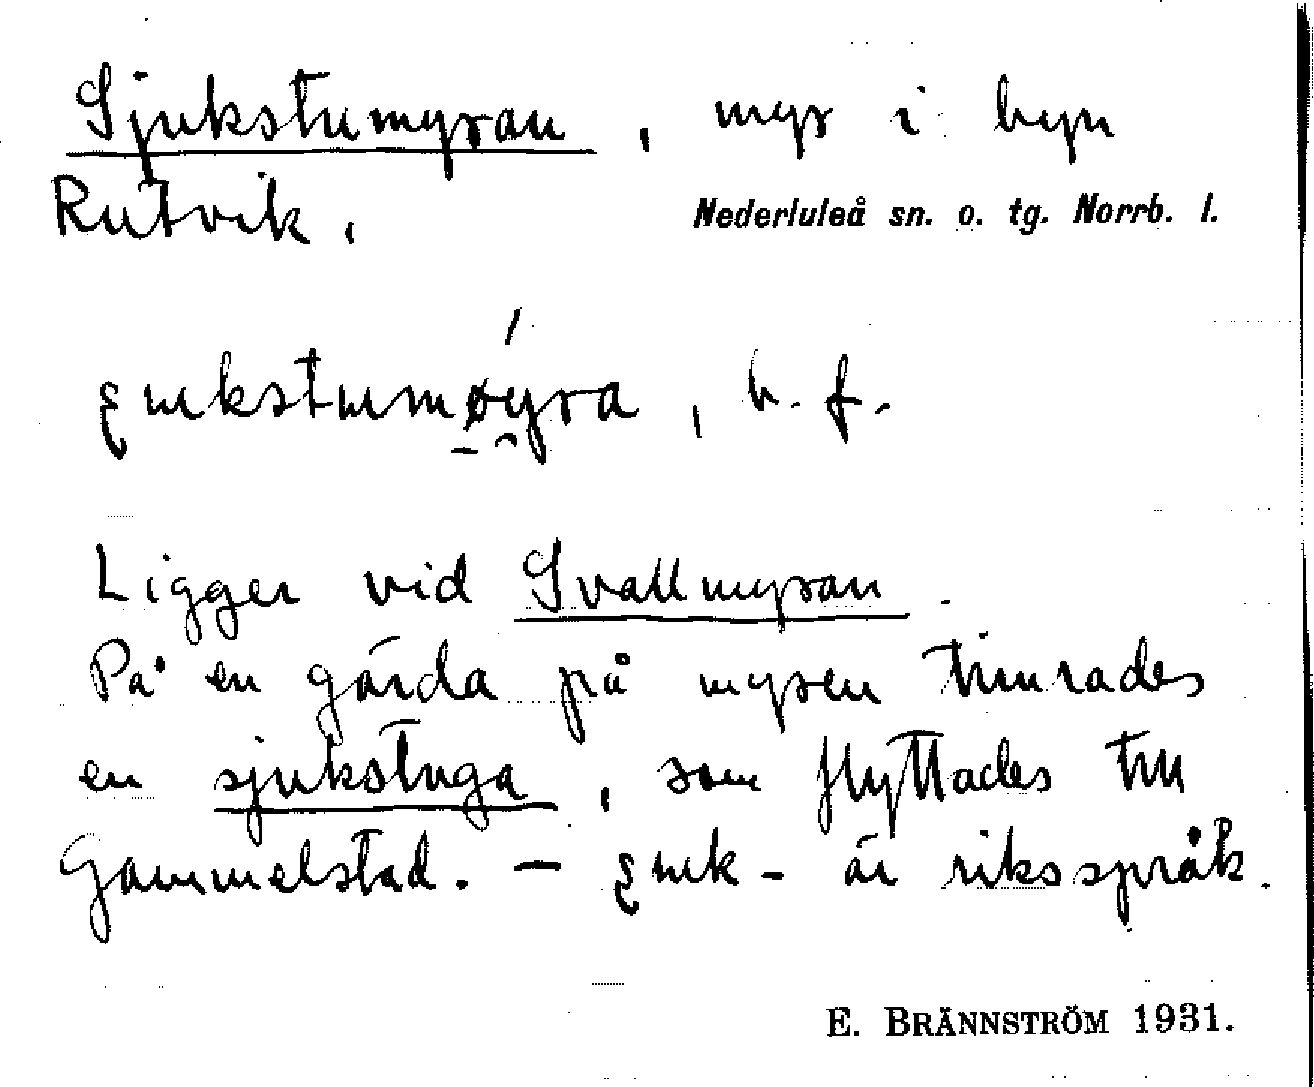 Sjukstumyran, myr i byn
Rutvik,
Nederluleå sn. o. tg. Norrb. l.
ʂukstumøyra, b. f.
Ligger vid Svallmyran.
På en gärda på myren timrades
en sjukstuga, som flyttades till
Gammelstad. – ʂuk- är riksspråk.
E. BRÄNNSTRÖM 1931.